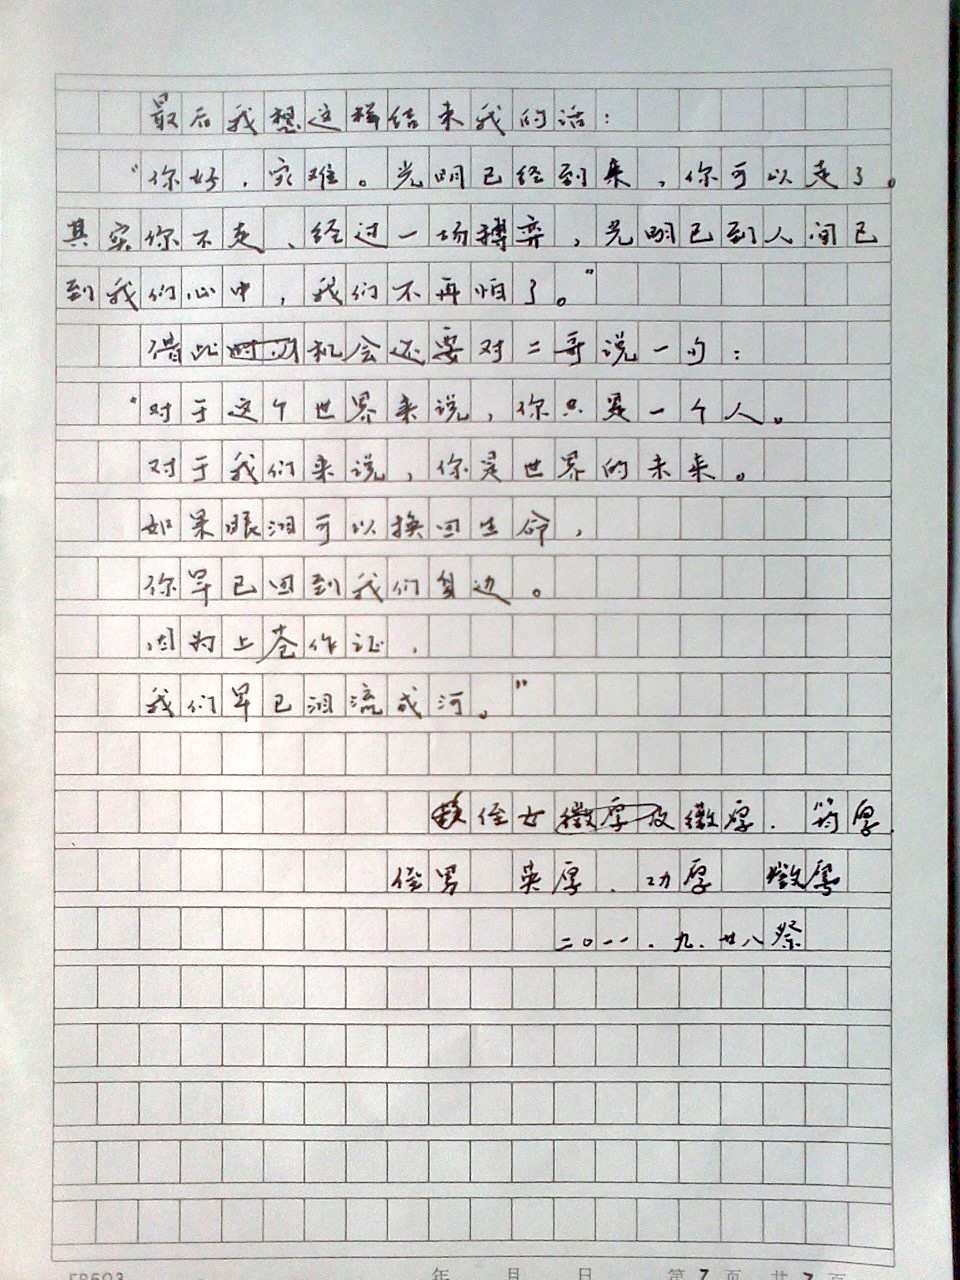 最后我想这样结束我的话：
“你好，灾难。光明已经到来，你可以走了。
其实你不走、经过一场搏弈，光明已到人间已
到我们心中，我们不再怕了。”
借此机会还要对二哥说一句：
“对于这个世界来说，你只是一个人。
对于我们来说，你是世界的未来。
如果眼泪可以换回生命，
你早已回到我们身边。
因为上苍作证，
我们早已泪流成河。”
侄女 徽厚. 筠厚.
侄男 英厚、功厚
二〇一一.九.廿八祭
年 月 日 第7页 共7页